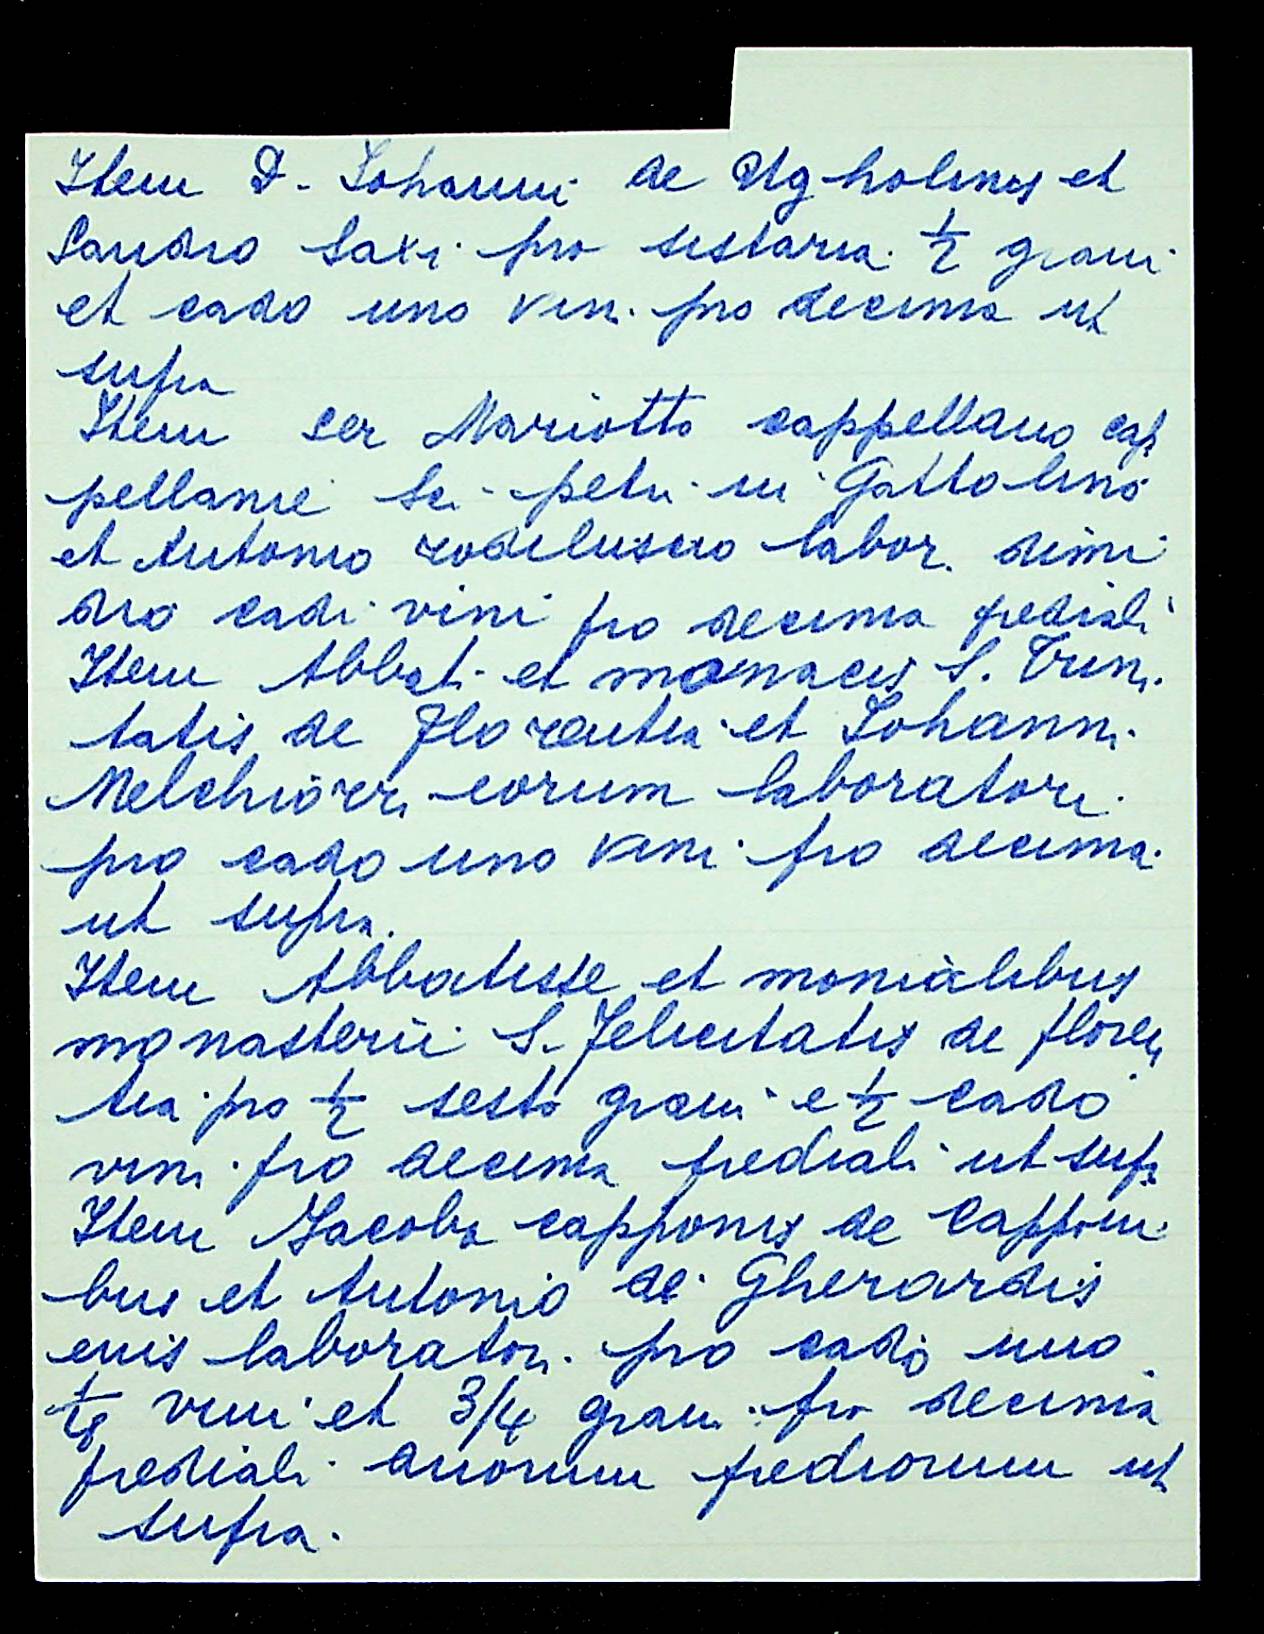 Item D. Iohanni de Ugholinis et
Sandro Saxi pro sestaria 1/2 grani
et cado uno vini pro decima ut
supra
Item ser Mariotto cappellano cap
pellanie Sci petri in Gattolino
et Antonio labor. dimi
dio cadi vini pro decima prediali
Item Abbati et monacis S. Trini
tatis de Florentia et Iohanni
Melchiorri eorum laboratori
pro cado uno vini pro decima
ut supra.
Item Abbatisse et monialibus
monasterii S. Felicitatis de floren
tia pro 1/2 sesto grani e 1/2 cado
vini pro decima prediali ut supr
Item Iacobo capponis de Capponi
bus et Antonio de Gherardis
euis laboratori pro cado uno
vini et 3/4 grani pro decima
prediali duorum prediorum ut
supra.